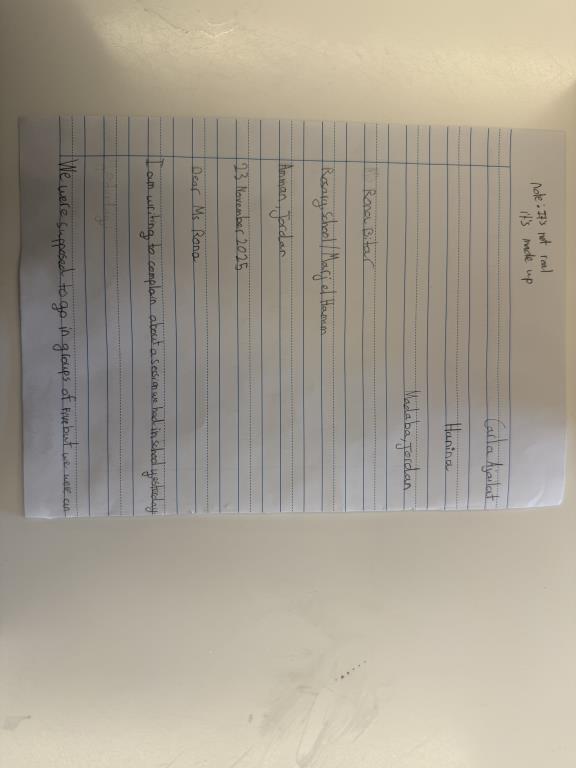 note: It's not real
it's made up
Carla Ajailat
Hanina
Madaba, Jordan
Rona Bitar
Rosary School / Marj el Hamam
Amman, Jordan
23 November 2025
Dear Ms Rona
I am writing to complain about a session we had in school yesterday
We were supposed to go in groups of five but we were an